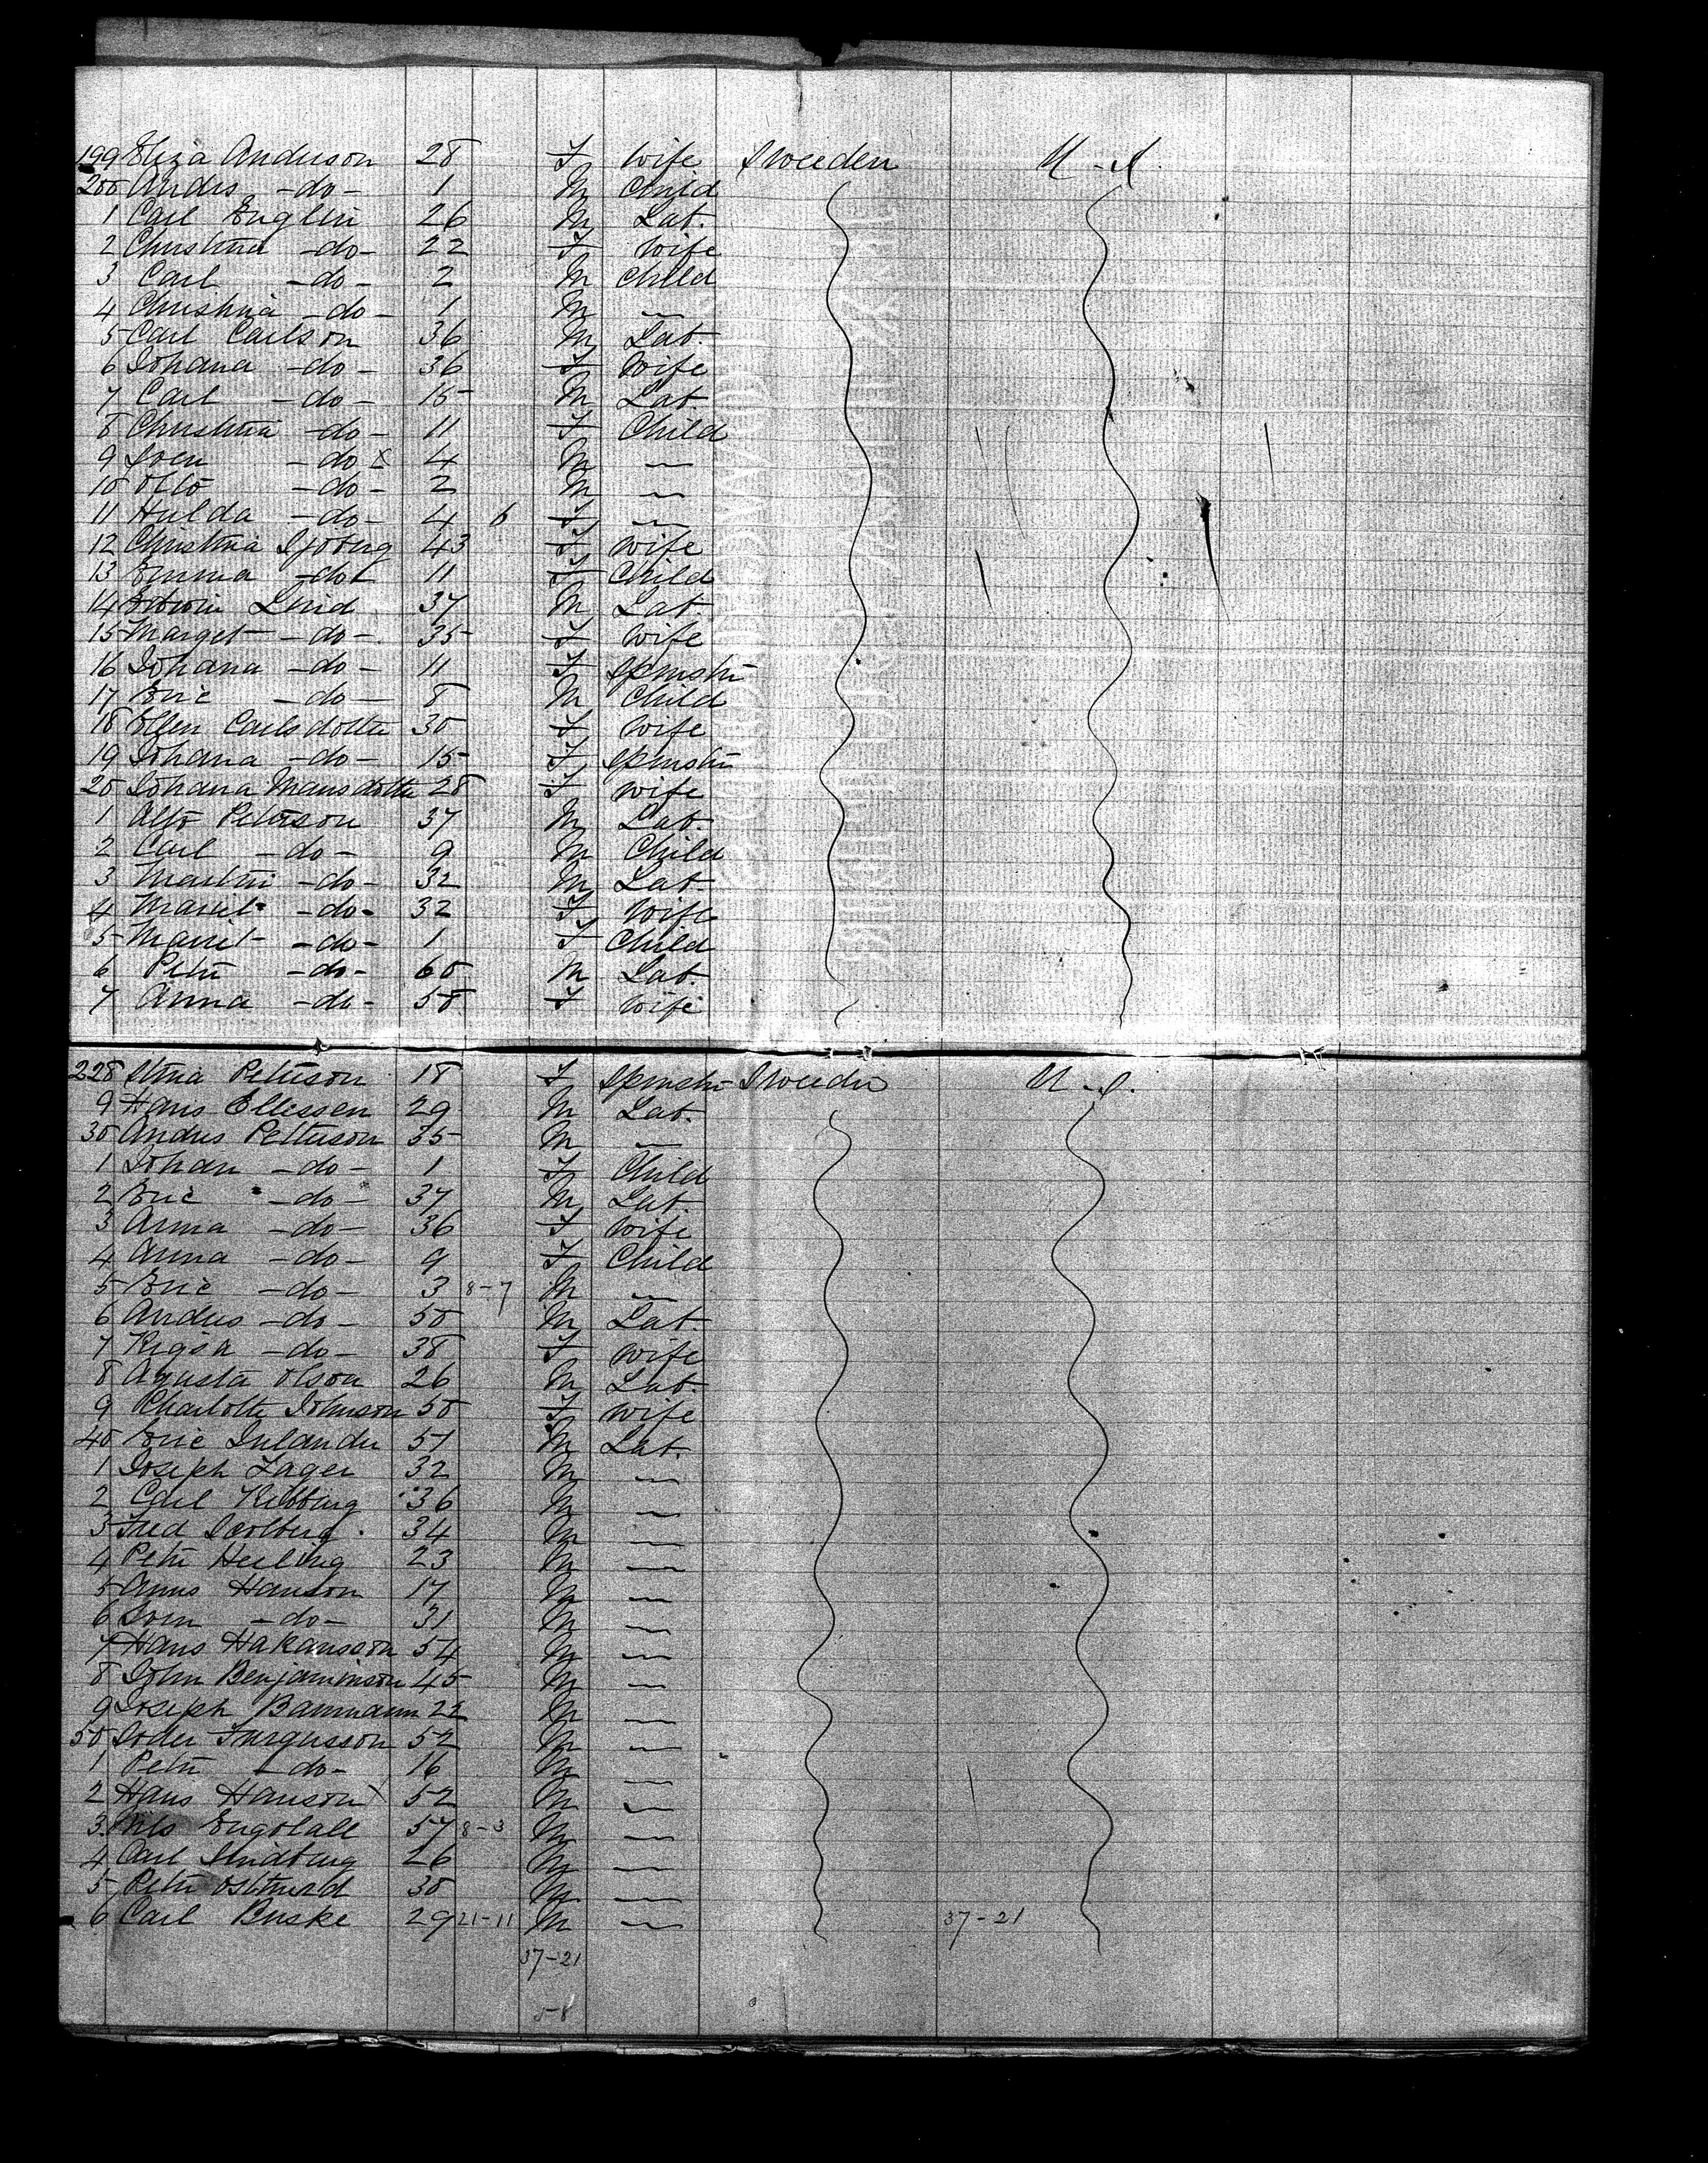 199 Eliza Anderson 28 F Wife Sweeden U-S.
200 Andrs -do- 1 M Child
1 Carl Englin 26 M Lab.
2 Christina -do- 22 F Wife
3 Carl -do- 2 M Child
4 Christina -do- 1 M "
5 Carl Carlson 36 M Lab.
6 Johana -do- 36 F Wife
7 Carl -do- 15 M Lab
8 Christina -do- 11 F Child
9 Sven -do- x 4 M "
10 Otto -do- 2 M "
11 Hulda -do- 4 6 F "
12 Christina Sjoberg 43 F Wife
13 Emma -do- 11 F Child
14 Edwin Lind 37 M Lab.
15 Marget -do- 35 F Wife
16 Johana -do- 11 F Spinstr
17 Eric -do- 8 M Child
18 Ellen Carlsdotter 30 F Wife
19 Johana -do- 15 F Spinstr
20 Johana Mansdotter 28 F Wife
1 Alto Peterson 37 M Lab.
2 Carl -do- 9 M Child
3 Martin -do- 32 M Lab.
4 Marit -do- 32 F Wife
5 Marit -do- 1 F Child
6 Petr -do- 60 M Lab.
7 Anna -do- 58 F Wife
228 Stina Peterson 18 F Spinstr Sweeden U-S.
9 Hans Ellessen 29 M Lab.
30 Andrs Petterson 35 M "
1 Johan -do- 1 F Child
2 Eric -do- 37 M Lab.
3 Anna -do- 36 F Wife
4 Anna -do- 9 F Child
5 Eric -do- 3 8-7 M "
6 Andrs -do- 50 M Lab.
7 Kigsa -do- 38 F Wife
8 Agusta Olson 26 M Lab.
9 Charlotte Johnson 50 F Wife
40 Eric Inlander 51 M Lab.
1 Joseph Lager 32 M "
2 Carl 36 M "
3 Fred 34 M "
4 Petr Heeling 23 M "
5 Anns Hanson 17 M "
6 Sven -do- 31 M "
7 Hans Hakansson 54 M "
8 John Benjaminson 45 M "
9 Joseph Baumann 22 M "
50 Furgusson 52 M "
1 Petr -do- 16 M "
2 Hans Hanson x 52 M "
3 Nils Engolall 57 8-3 M "
4 Carl Lindburg 26 M "
5 Petr 30 M "
6 Carl Buske 29 21-11 M " 37-21
37-21
58